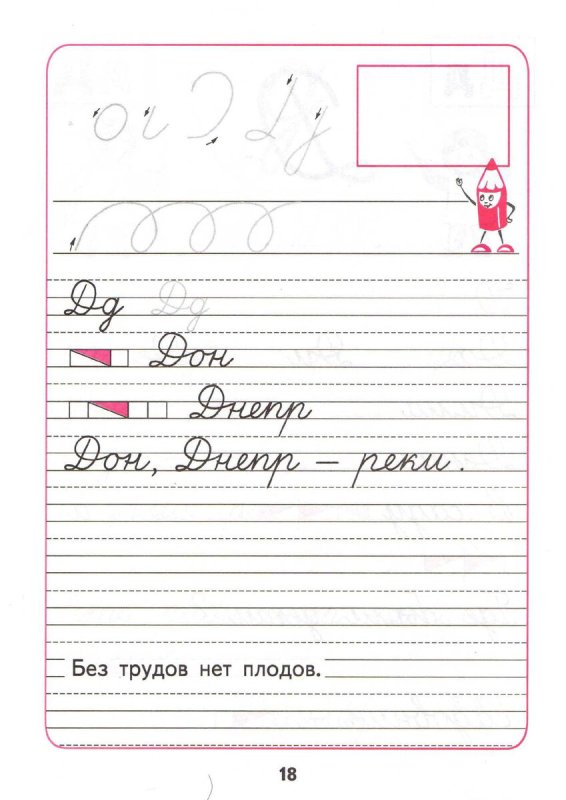 Дд Дд
Дон
Днепр
Дон, Днепр – реки.
Без трудов нет плодов.
18